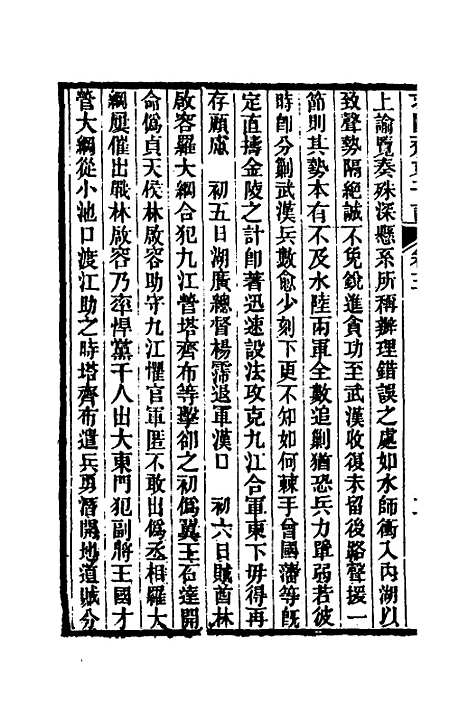 上諭覽奏殊深懸系所稱辦理錯誤之處如水師衝入內湖以
致聲勢隔絕誠不免銳進貪功至武漢收復未留後路聲援一
節則其勢本有不及水陸兩軍全數追剿猶恐兵力單弱若彼
時卽分剿武漢兵數愈少刻下更不知如何棘手曾國藩等旣
定直擣金陵之計卽著迅速設法攻克九江合軍東下毋得再
存顧慮　初五日湖廣總督楊霈退軍漢口　初六日賊酋林
啟容羅大綱合犯九江營塔齊布等擊卻之初僞翼王石達開
命僞貞天侯林啟容助守九江懼官軍匿不敢出僞丞相羅大
綱屢催出戰林啟容乃率悍黨千人出大東門犯副將王國才
營大綱從小池口渡江助之時塔齊布遣兵勇潛開地道賊分